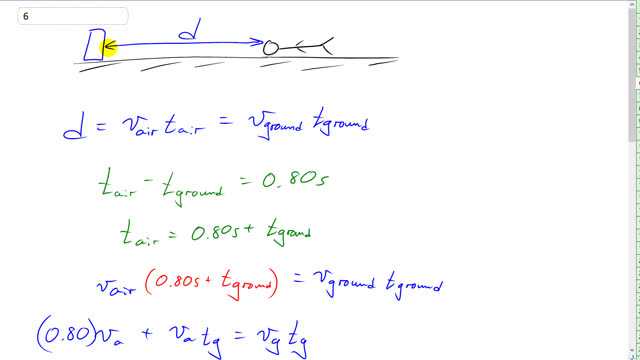 6
d
d = v_air t_air = v_ground t_ground
t_air - t_ground = 0.80s
t_air = 0.80s + t_ground
v_air (0.80s + t_ground) = v_ground t_ground
(0.80)v_a + v_a t_g = v_g t_g